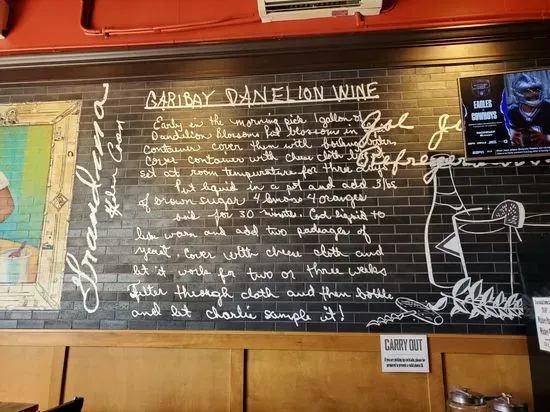 GARIBAY DANELION WINE
Early in the morning pick 1 gallon of
Dandilion blossoms put blossoms in
container cover them with boiling water,
cover container with chees cloth
set at room temperature for three days
Put liquid in a pot and add 3 lbs
of brown sugar 4 lemons 4 oranges
boil for 30 minute. Cool liquid to
luke warm and add two packages of
yeast. cover with cheese cloth and
let it work for two or three weeks
filter through cloth and then bottle
and let charlie sample it!
Grandma
Helen
EAGLES
COWBOYS
CARRY OUT